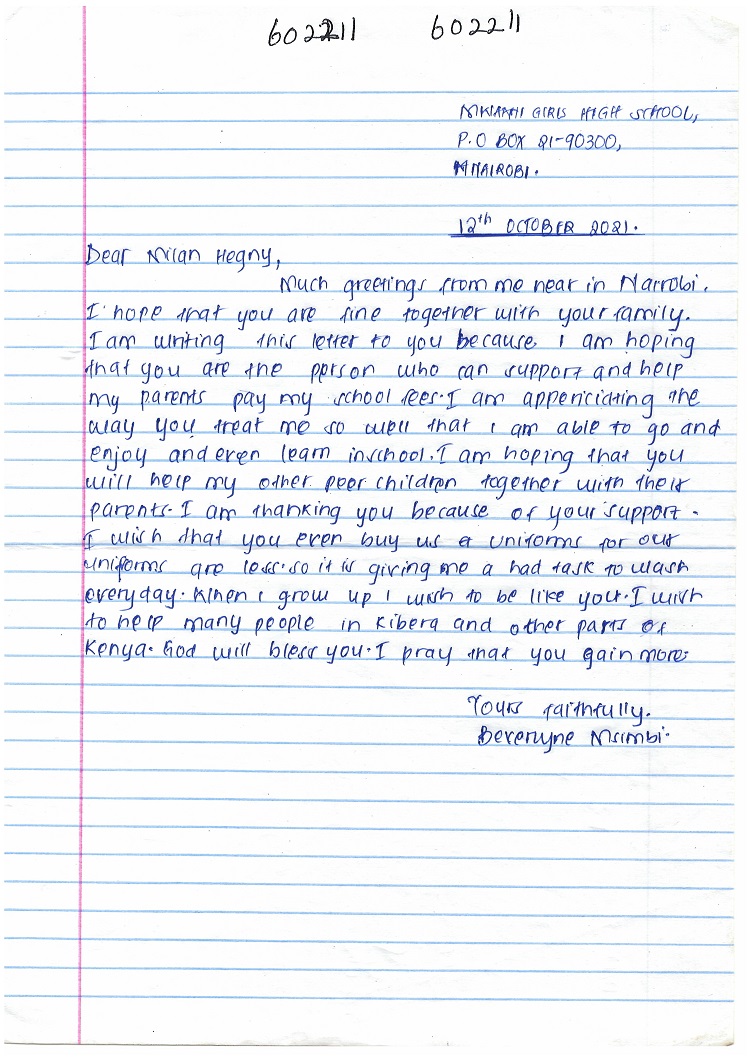 602211 602211
MKIAMHI GIRLS HIGH SCHOOL,
P.O BOX 21-90300,
NAIROBI.
12th OCTOBER 2021.
Dear Milan Hegny,
Much greetings from me near in Nairobi.
I hope that you are fine together with your family.
I am writing this letter to you because I am hoping
that you are the person who can support and help
my parents pay my school fees. I am appericiating the
way you treat me so well that I am able to go and
enjoy and even learn inschool. I am hoping that you
will help my other peer children together with their
parents. I am thanking you because of your support.
I wish that you even buy us uniforms for our
uniforms are less. so it is giving me a had task to wash
everyday. When I grow up I wish to be like you. I wish
to help many people in Kibera and other parts of
Kenya. God will bless you. I pray that you gain more.
Yours faithfully.
Msimbi.